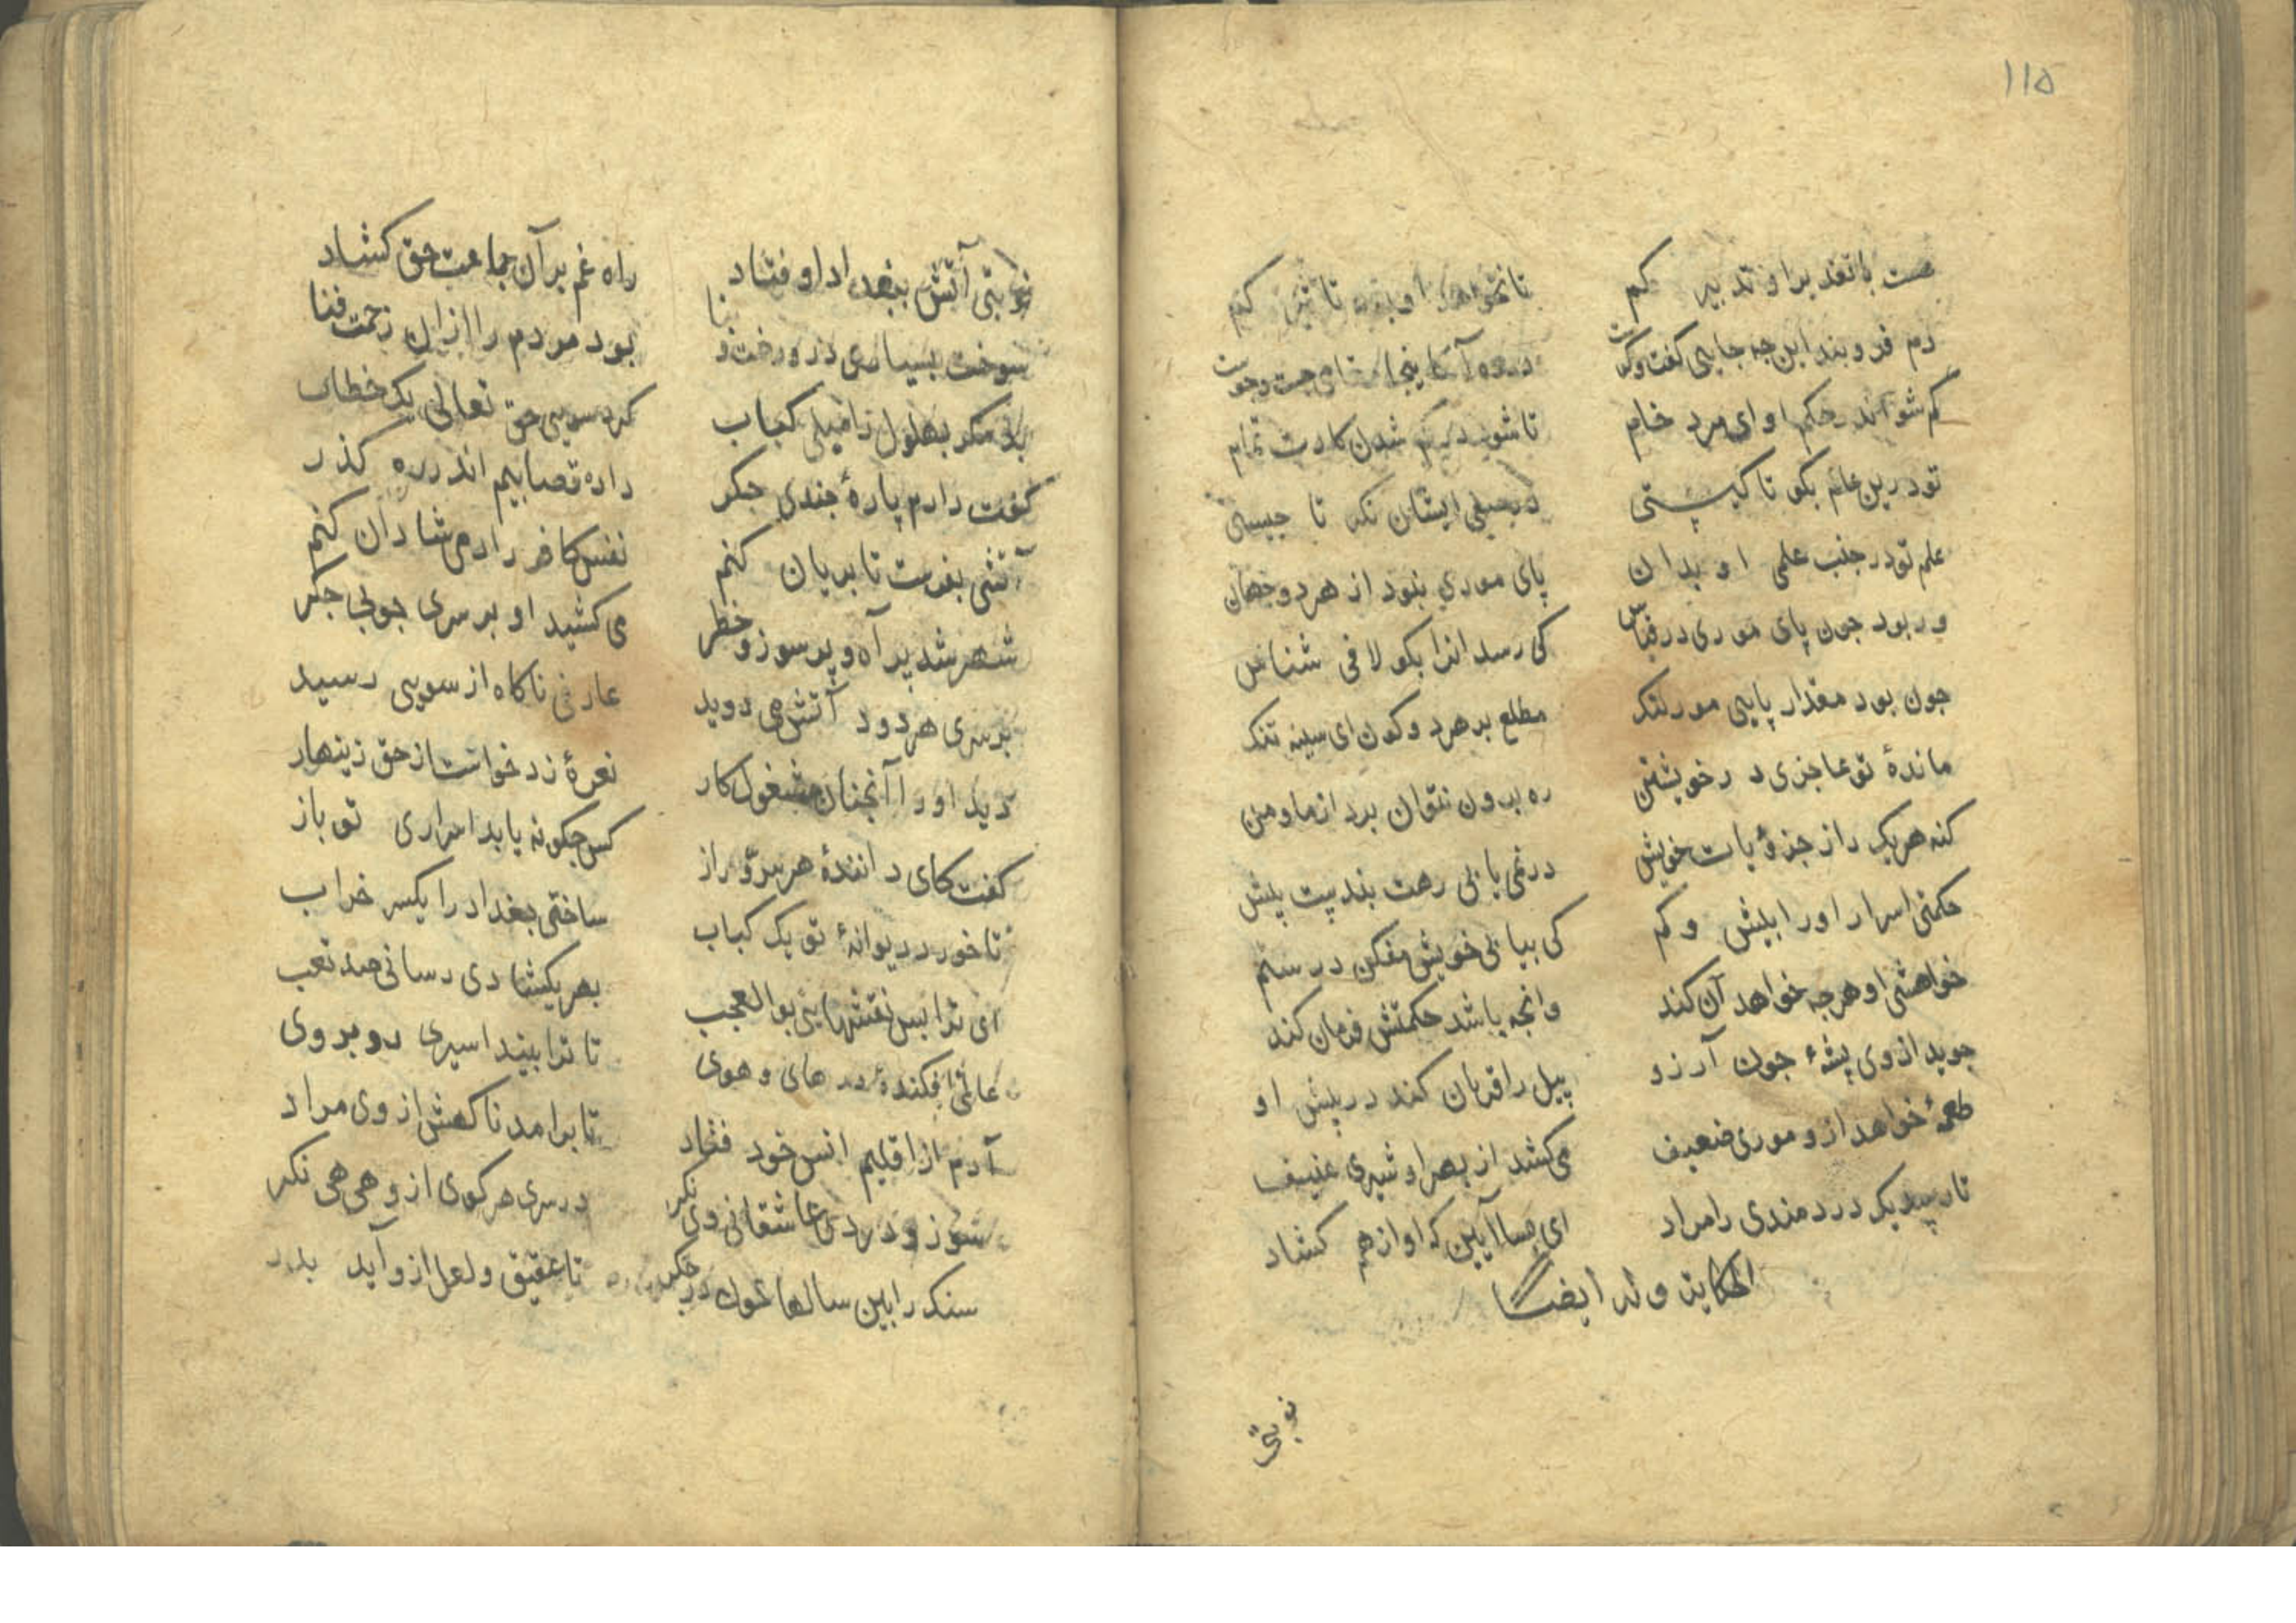 ۱۱۵
هست با تقدیر او تدبیر کم تا نخواهد او بود تاثیر کم
دم فرو بند این جه جایی گفت وکوست
کم شو اندر حکم او ای مرد خام تا شود در کم شدن کارت تمام
تو درین عالم بکو تا کیستی در ایشان نکه تا جیستی
علم تو در جنب علمی او بدان پای موری بنود از هر دو جهان
ور بود جون پای موری در قیاس کی رسد انرا بکو لافی شناس
جون بود مقدار پایی مور لنک مطلع بر هر دو کون ای سینه تنک
ماندهٔ تو عاجزی در خویشتن ره برون نتوان برد از ما و من
کنه هر یک را ز جزؤیات خویش در نمی یابی رهت بندیت پیش
حکمتی اسرار او را بیش و کم کی بیابی خویش مفکن در ستم
خواهشی او هرجه خواهد آن کند وانجه باشد حکمتش فرمان کند
جوید از وی پشهٔ جون آرزو پیل را قربان کند در پیش او
طعمهٔ خواهد ازو موری ضعیف می کشد از بهر او شیری عنیف
تا رسید یک دردمندی را مراد ای بسا آیین که او از هم کشاد
الحکایت وله ایضا
نوبتی
نوبتی آتش ببغداد اوفتاد راه غم بر آن جماعت حق کشاد
سوخت بسیاری در و رخت و بنا بود مردم را ازان زحمت فنا
بد مکر بهلول را میلی کباب کرد سویی حق تعالی یک خطاب
کفت دارم پارهٔ جندی جکر داده قصابیم اندر ره کذر
آتشی بفرست تا بریان کنم نفس کافر را دمی شادان کنم
شهر شد پر آه و پر سوز و خطر می کشید او بر سری جوبی جکر
بر سری هر دود آتش می دوید عارفی ناکاه از سویی رسید
دید او را آنجنان مشغول کار نعرهٔ زد خواست از حق زینهار
کفت کای دانندهٔ هر سرّ و راز کس جکونه یابد اسراری تو باز
تا خورد دیوانهٔ تو یک کباب ساختی بغداد را یکسر خراب
ای ترا بس نقشهایی بو العجب بهر یکشادی رسانی صد تعب
عالمی افکندهٔ در های و هوی تا ترا بیند اسیری رو بروی
آدم از اقلیم انس خود فتاد تا برامد ناکهش از وی مراد
سوز و درد عاشقانی وی نکر در سری هر کوی ازو هی هی نکر
سنک را بین سالها خون در جکر تا عقیق و لعل ازو آید بدر